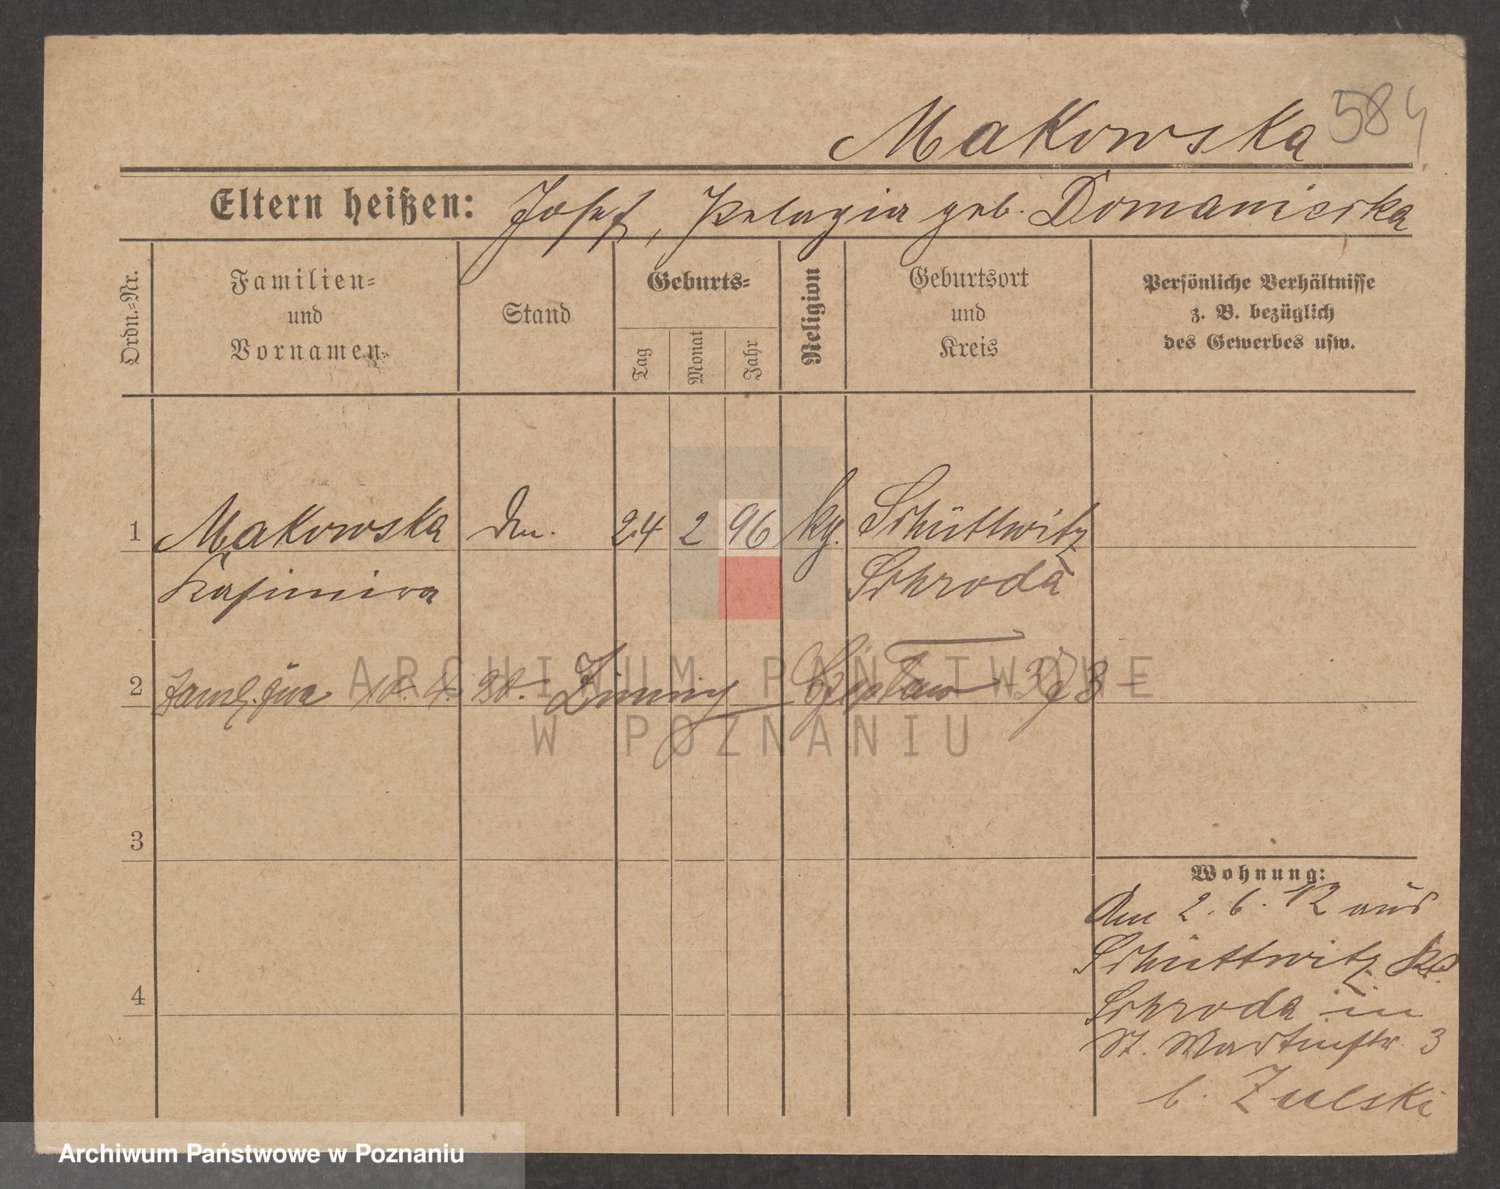 Makowska 584
Eltern heißen: Josef, Pelagia geb. Domanierska
Ordn.-Nr.
Familien-
und
Vornamen
Stand
Geburts-
Tag
Monat
Jahr
Religion
Geburtsort
und
Kreis
Persönliche Verhältnisse
z. B. bezüglich
des Gewerbes usw.
1 Makowska 24 2 96 Schüttwitz
Kasimira Schroda
2 Zimny 3
3
4
Wohnung:
Am 2. 6. 12 aus
Schüttwitz Krs.
Schroda in
St. Martinstr. 3
b. Zulski
ARCHIWUM PAŃSTWOWE
W POZNANIU
Archiwum Państwowe w Poznaniu